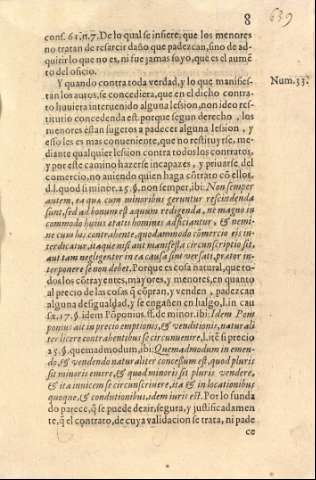 8
639
cons. 61. n. 7. De lo qual se infiere, que los menores
no tratan de resarcir daño que padezcan, sino de ad-
quirir lo que no es, ni fue jamas suyo, que es el aumē
to del oficio.
Y quando contra toda verdad, y lo que manifies-
Num. 33.
tan los autos, se concediera, que en el dicho contra-
to huuiera interuenido alguna lesion, non ideo res-
titutio concedenda est porque segun derecho, los
menores estan sugetos a padecer alguna lesion, y
esto les es mas conueniente, que no restituyrse, me-
diante qualquier lesion contra todos los contratos,
y por este camino hazerse incapazes, y priuarse del
comercio, no auiendo quien haga cōtrato cō ellos.
d. l. quod si minor. 25. §. non semper, ibi: Non semper
autem, ea quæ cum minoribus geruntur rescindenda
sunt, sed ad bonum est æquum redigenda, ne magno in
commodo huius ætatis homines adficiantur, & nemi-
ne cum his contrahente, quodammodo cōmercio eis in-
terdicatur, itaque nisi aut manifesta circunscriptio sit,
aut tam negligenter in ea causa sint versati, prætor in-
terponere se non debet. Porque es cosa natural, que to-
dos los cōtrayentes, mayores, y menores, en quanto
al precio de las cosas q̃ cōpran, y venden, padezcan
alguna desigualdad, y se engañen en lalgo, l. in cau
sæ. 17. §. idem Pōponius. ff. de minor. ibi: Idem Pom
ponius ait in precio emptionis, & venditionis, naturali
ter licere contrahentibus se circunuenire, l. itē si precio
25. §. quemadmodum, ibi: Quemadmodum in emen-
do, & vendendo naturaliter concessum est, quod pluris
sit minoris emire, & quod minoris sit pluris vendere,
& ita inuicem se circunscriuere, ita & in locationibus
quoque, & condutionibus, idem iuris est. Por lo funda
do parece, q̃ se puede dezir, segura, y justificadamen
te, q̃ el contrato, de cuya validacion se trata, ni pade
ce